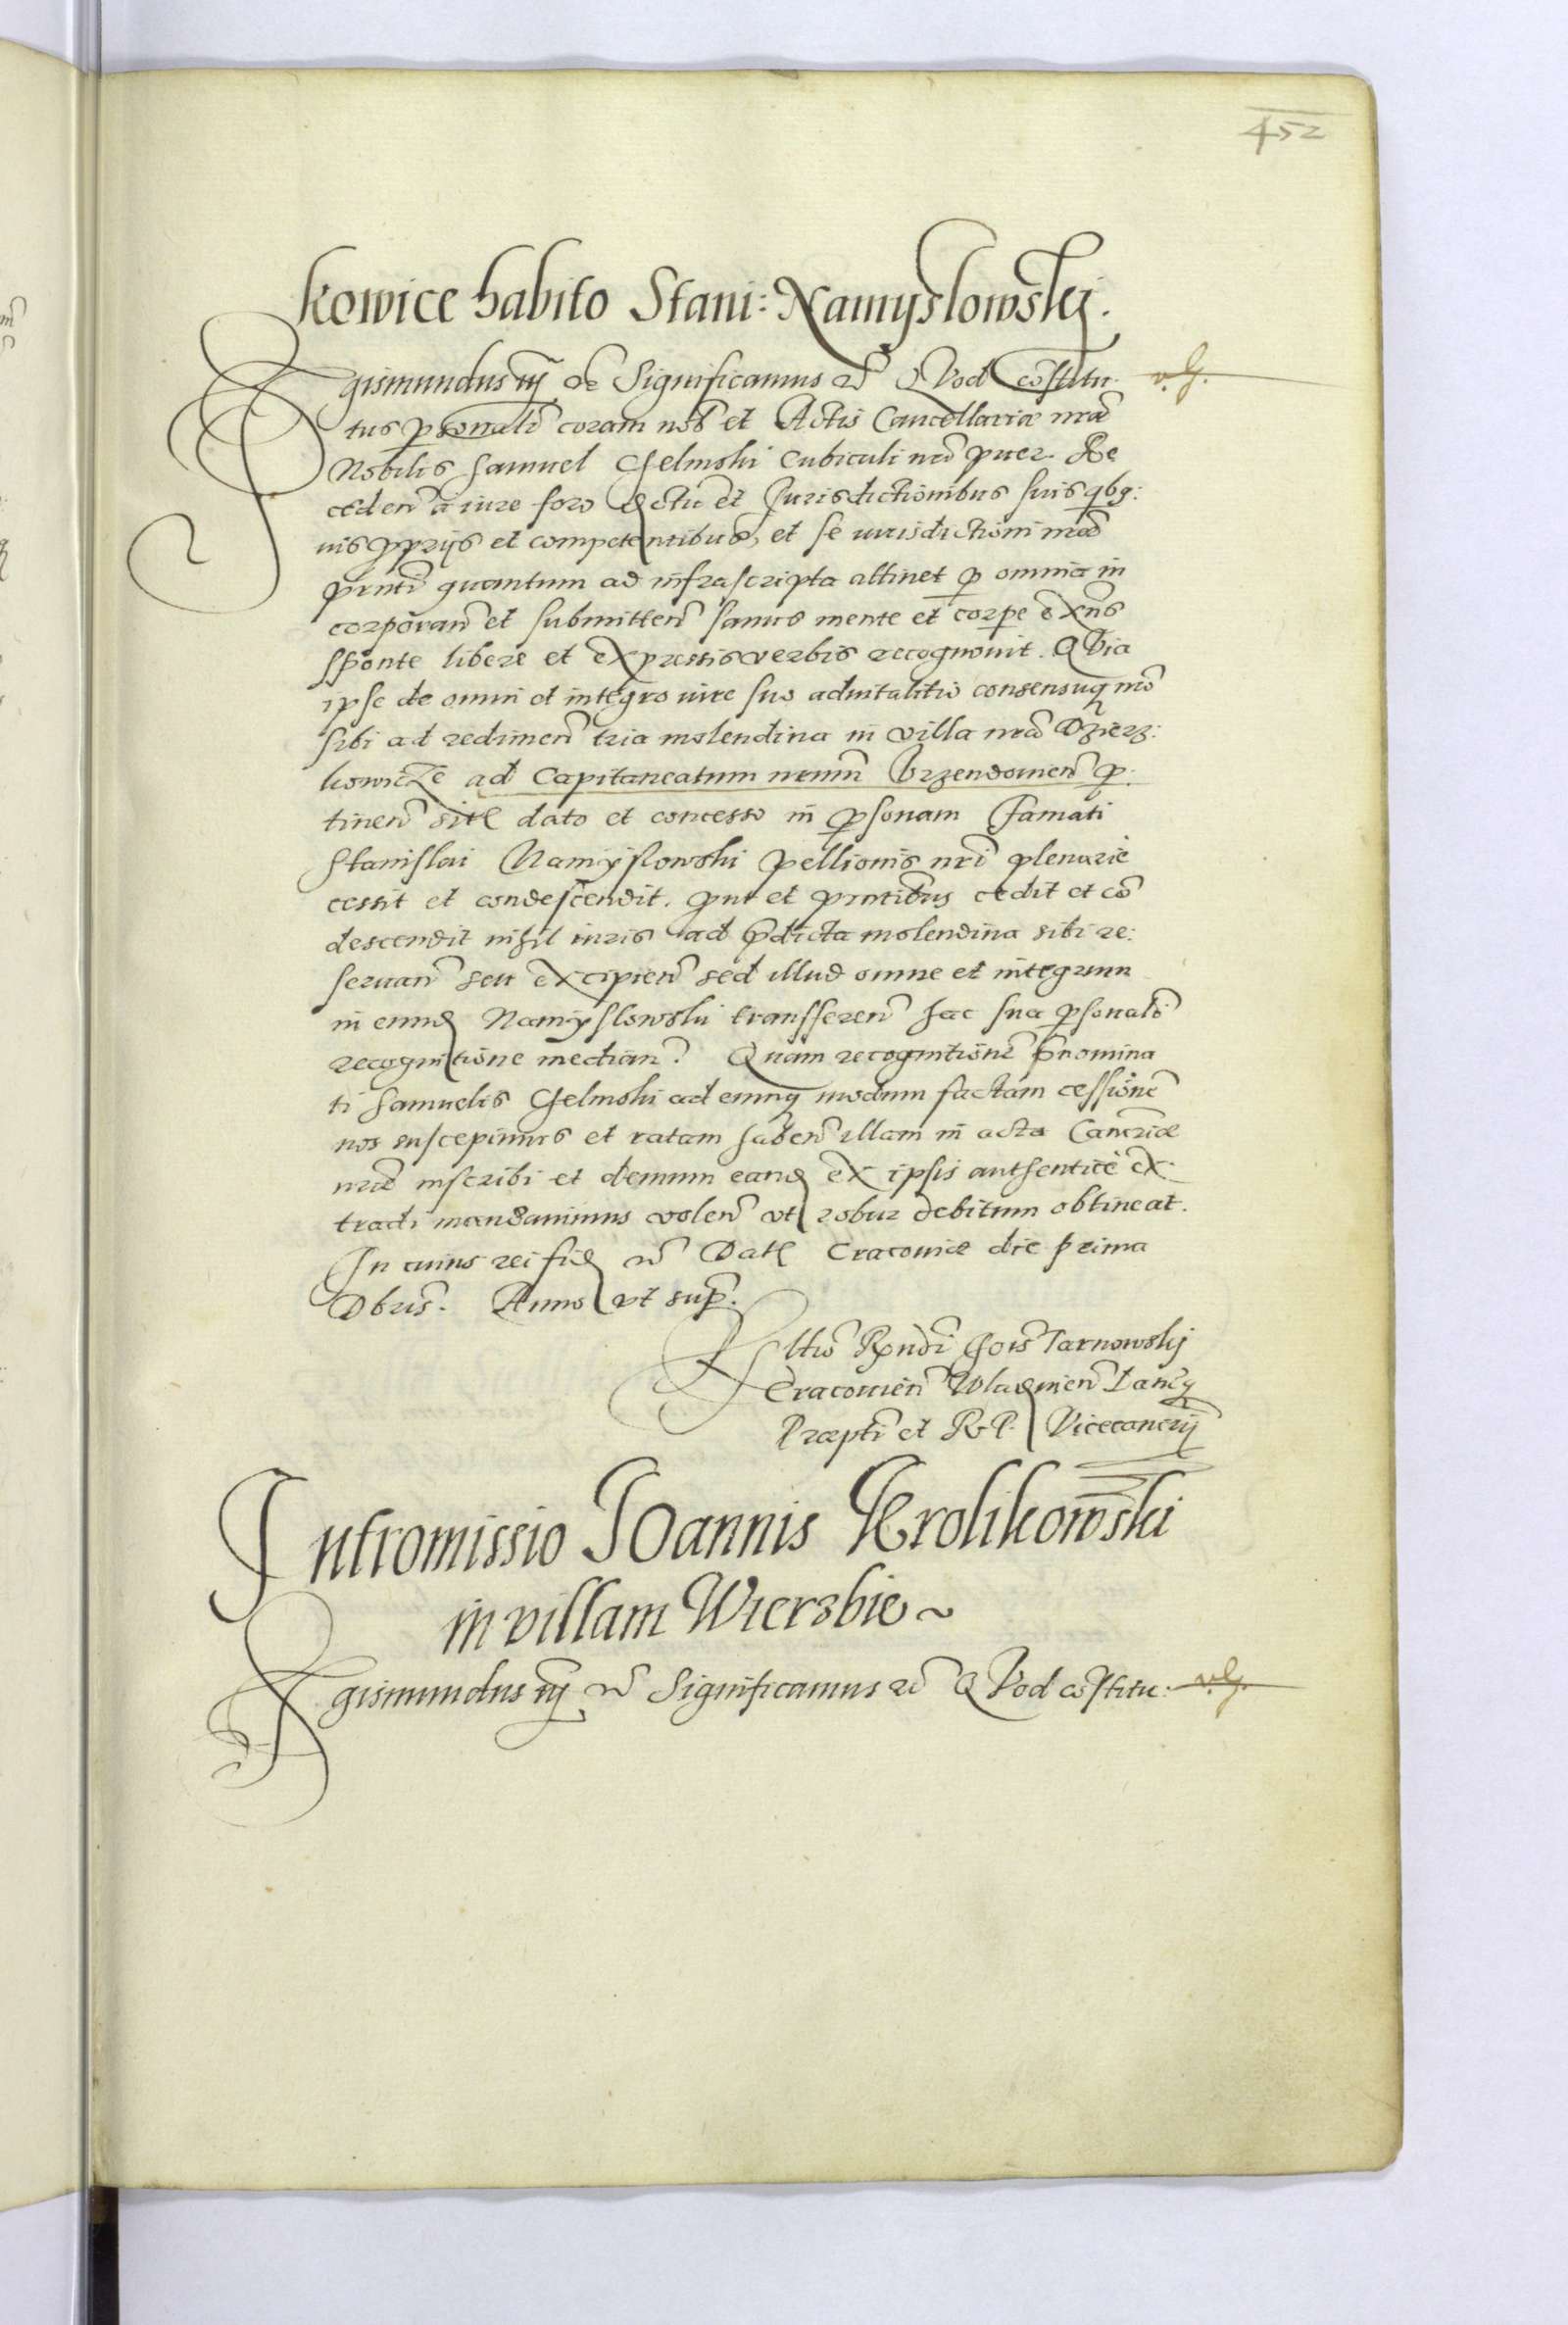 452
kowice habito Stani: Namyslowskj.
Sigismundus iij etc Significamus etc Quod costitu
v. G.
tus psonalr coram nob et Actis Cancellariæ nræ
Nobilis Samuel Chelmski Cubiculi nri puer. Re
ceden a iure foro districtu et Jurisdictionibus suis qbg:
uis pprijs et competentibus, et se iurisdictioni nræ
pnti quantum ad infrascripta attinet p omnia in
corporan et submitten sanus mente et corpe exns
sponte libere et expressis verbis recognouit. Quia
ipse de omni et integro iure suo aduitalitio consensuq nro
sibi ad redimen tria molendina in villa nra Dzierz:
kowicze ad Capitaneatum nrum Vrzendouien p:
tinen sitis dato et concesso in psonam Famati
Stanislai Namyslowski pellionis nri plenarie
cessit et condescendit. put et pntibus cedit et co
descendit nihil iuris ad pdicta molendina sibi re:
seruan seu excipien sed illud omne et integrum
in eund Namyslowski transferen hac sua psonali
recognitione median. Quam recognitione pnomina
ti Samuelis Chelmski ad eumq modum factam cessione
nos suscepimus et ratam haben illam in acta Cancriæ
nræ inscribi et demum eand ex ipsis authentice ex
tradi mandauimus volen ut robur debitum obtineat.
In cuius rei fid etc Dat Cracouiæ die prima
Xbris. Anno ut sup.
Reltio Rndi Jois Tarnowskj
Cracouien Wladislauien Lancq
Præpti et R. P. Vicecancrij
Intromissio Joannis Krolikowski
in villam Wierzbie ~
Sigismundus iij etc Significamus etc Quod costitu:
v. G.